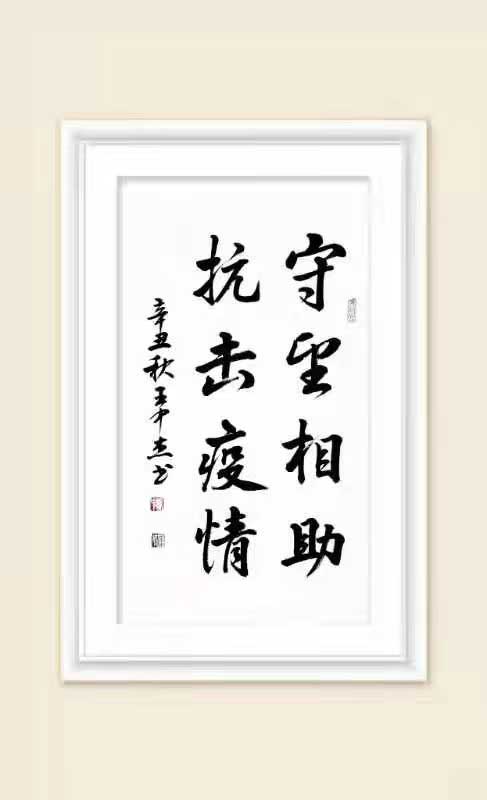 守望相助
抗击疫情
辛丑秋王中杰书